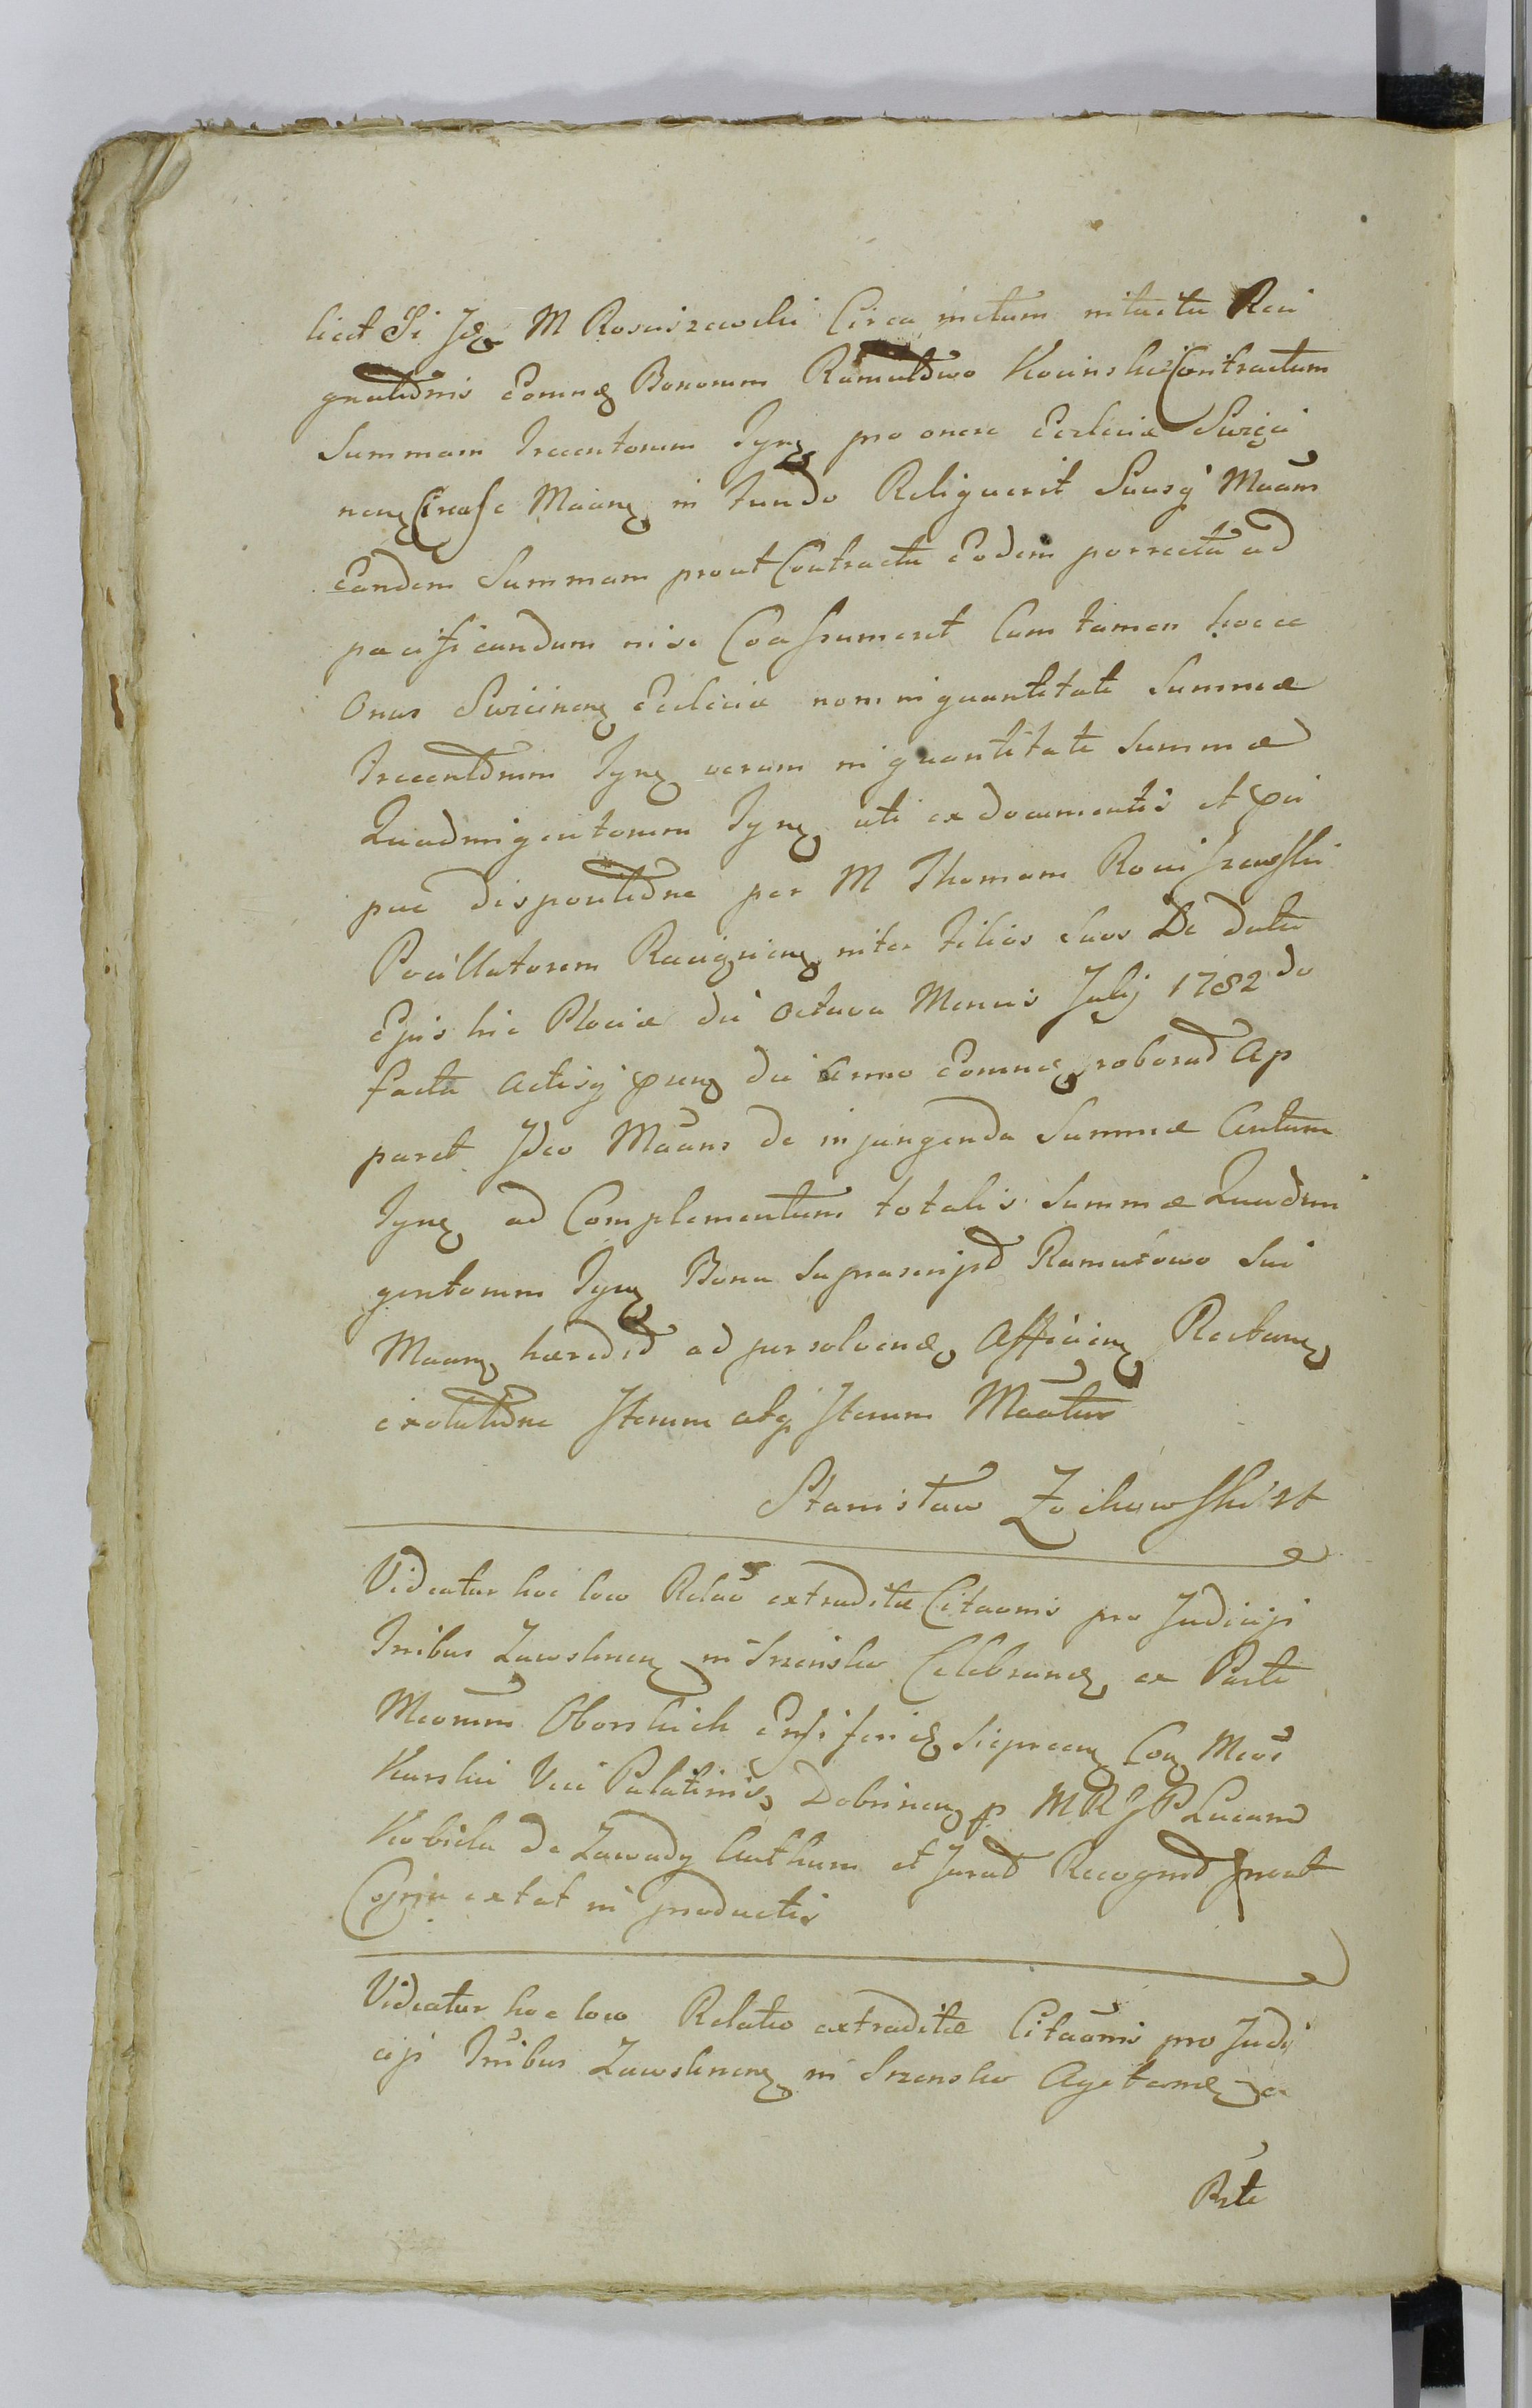 licet Si Idem M Rosciszewski Circa initum intuitu Resi
gnationis eorumd Bonorum Ramutowo Kocinski Contractum
Summam Trecentorum Tynf pro onere Ecclesiae Swięci
nen Circa se Maan in fundo Reliquerit Suusq Maans
Eandem Summam prout Contractu Eodem porrecta ad
pacificandum in se Coassumerit Cum tamen hocce
Onus Swięcinen Ecclesiae non in quantitate Summae
Trecentorum Tynf verum in quantitate Summae
Quadringentorum Tynf uti ex documentis et
disportione per M Thomam Rosciszewski
Pocillatorem Raciążnen inter filios suos De data
Ejus hic Plociae die octava Mensis Julij 1782do
facta Actisq die anno eorum roborat Ap
paret Ideo Maans de injungenda Summae Centum
Tynf ad Complementum totalis Summae Quadrin
gentorum Tynf Bona suprascript Ramutowo Sui
Maan haeredit ad persolvend Afficien
Iterum atq Iterum Maatur
Stanisław Żochowski
Videatur hoc loco Relao extraditae Citaonis pro Judicijs
Tribus Zawskrnen in Srzensko Celebrand ex Parte
Meorum Oborskich Ensiferid Sieprcen Con Meos
Karski Vice Palatinis Dobrinen p M R J P Lucam
Kobiela de Zawady Authum et Jurat Recognit prout
Copia extat in productis
Videatur hoc loco Relatio extraditae Citaonis pro Judi
cijs Tribus Zawskrnen in Srzensko Agitand ex
Prte